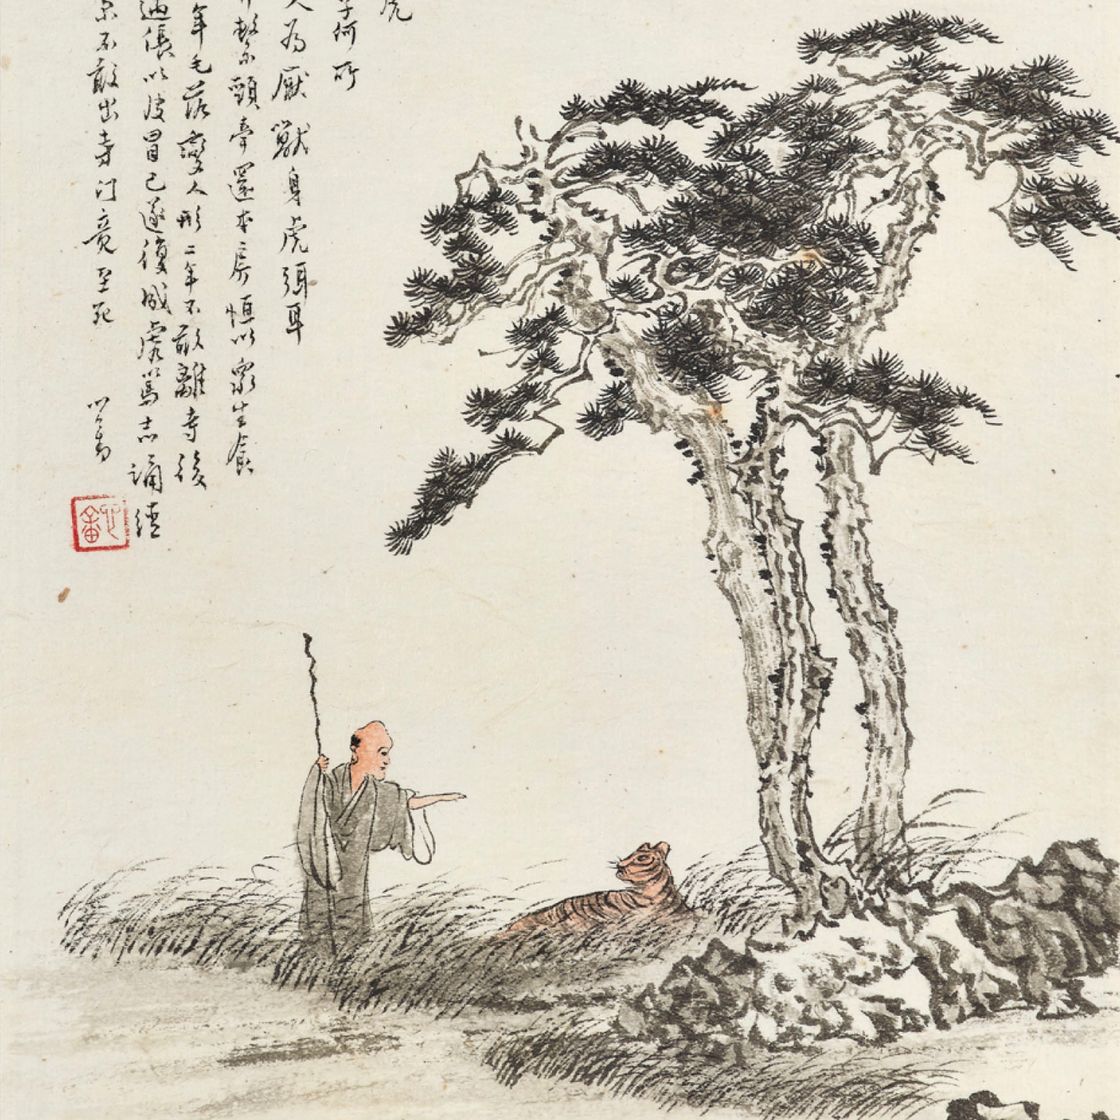 虎
何所
為厭獸身虎弭耳
繫頸牽還本房恒以眾生食
年毛落變人形二年不敢離寺後
以皮冒己遂復成虎篤志誦經
不敢出寺门竟至死
心畬
心畬